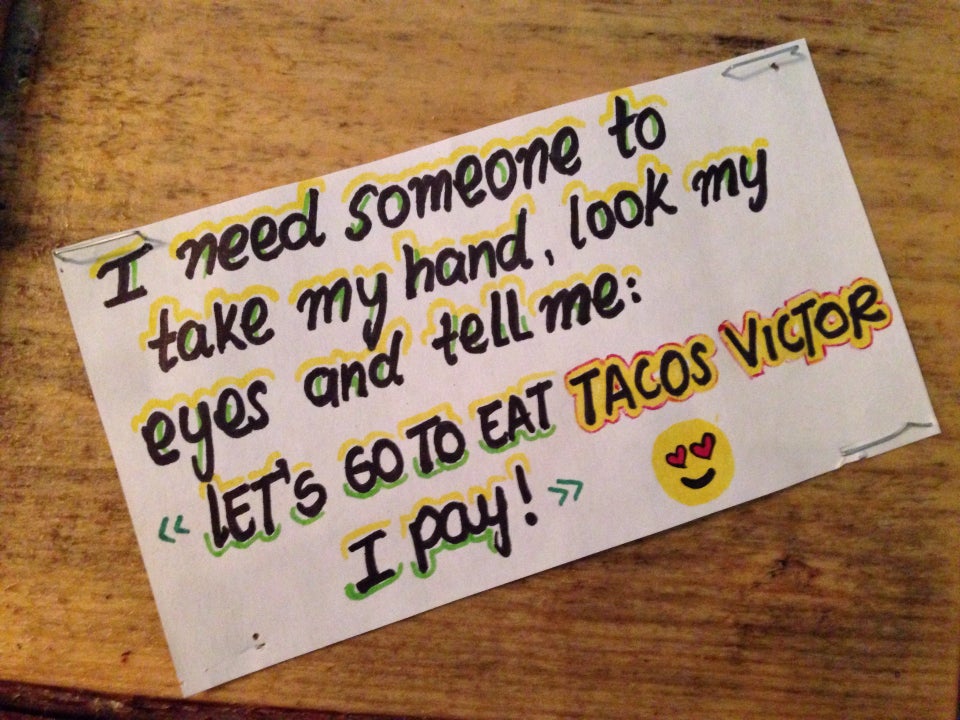 I need someone to
take my hand, look my
eyes and tell me:
« LET'S GO TO EAT TACOS VICTOR
I pay! »